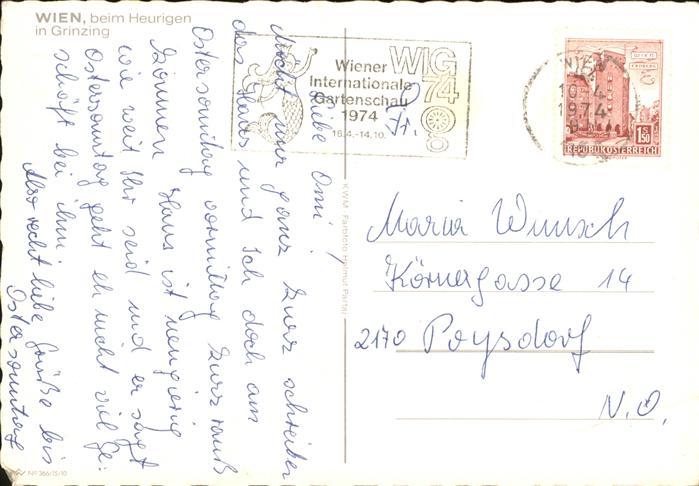 WIEN, beim Heurigen
in Grinzing
Wiener
Internationale
Gartenschau
1974
16.4.-14.10.
WIG
74
WIEN
1974
WIEN
ERDBERG
1.50
REPUBLIK ÖSTERREICH
Liebe Omi!
Möcht nur ganz kurz schreiben
das Hans und Ich doch am
Ostersonntag vormittag kurz rauß
kommen. Hans ist neugierig
wie weit Ihr seid und er sagt
Ostersonntag geht eh nicht viel Ge-
schäft bei ihm.
Also recht liebe Grüße bis
Ostersonntag
Fr.
Maria Wunsch
Körnergasse 14
2170 Poysdorf
N.Ö.
KWM Farbfoto Helmut Partaj
Nº 366/15/10